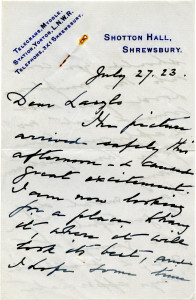 TELEGRAMS, MYDDLE.
STATION, YORTON, L.N.W.R.
TELEPHONE, 241 SHREWSBURY.
SHOTTON HALL,
SHREWSBURY.
July 27. 23.
Dear Laszlo
The picture
arrived safely this
afternoon & caused
great excitement.
I am now looking
for a place to hang
it where it will
look its best, and
I hope some time